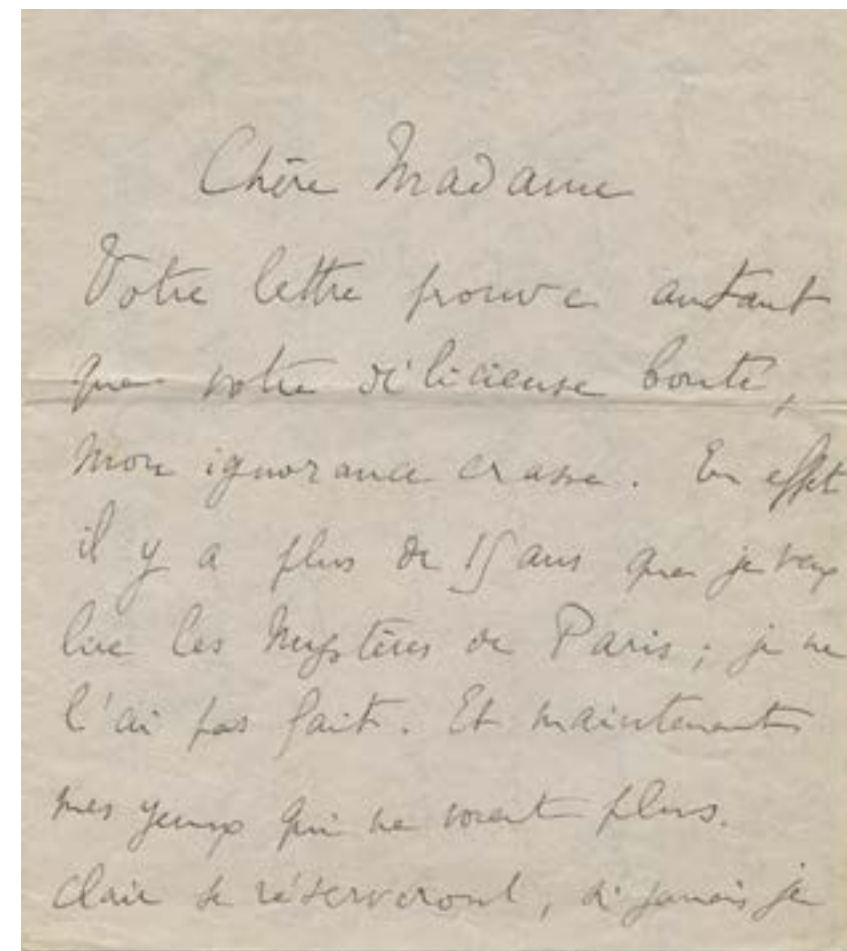 Chère Madame
Votre lettre prouve autant
que votre délicieuse bonté,
mon ignorance crasse. En effet
il y a plus de 15 ans que je veux
lire les Mystères de Paris ; je ne
l'ai pas fait. Et maintenant
mes yeux qui ne voient plus.
clair se réserveront, si jamais je